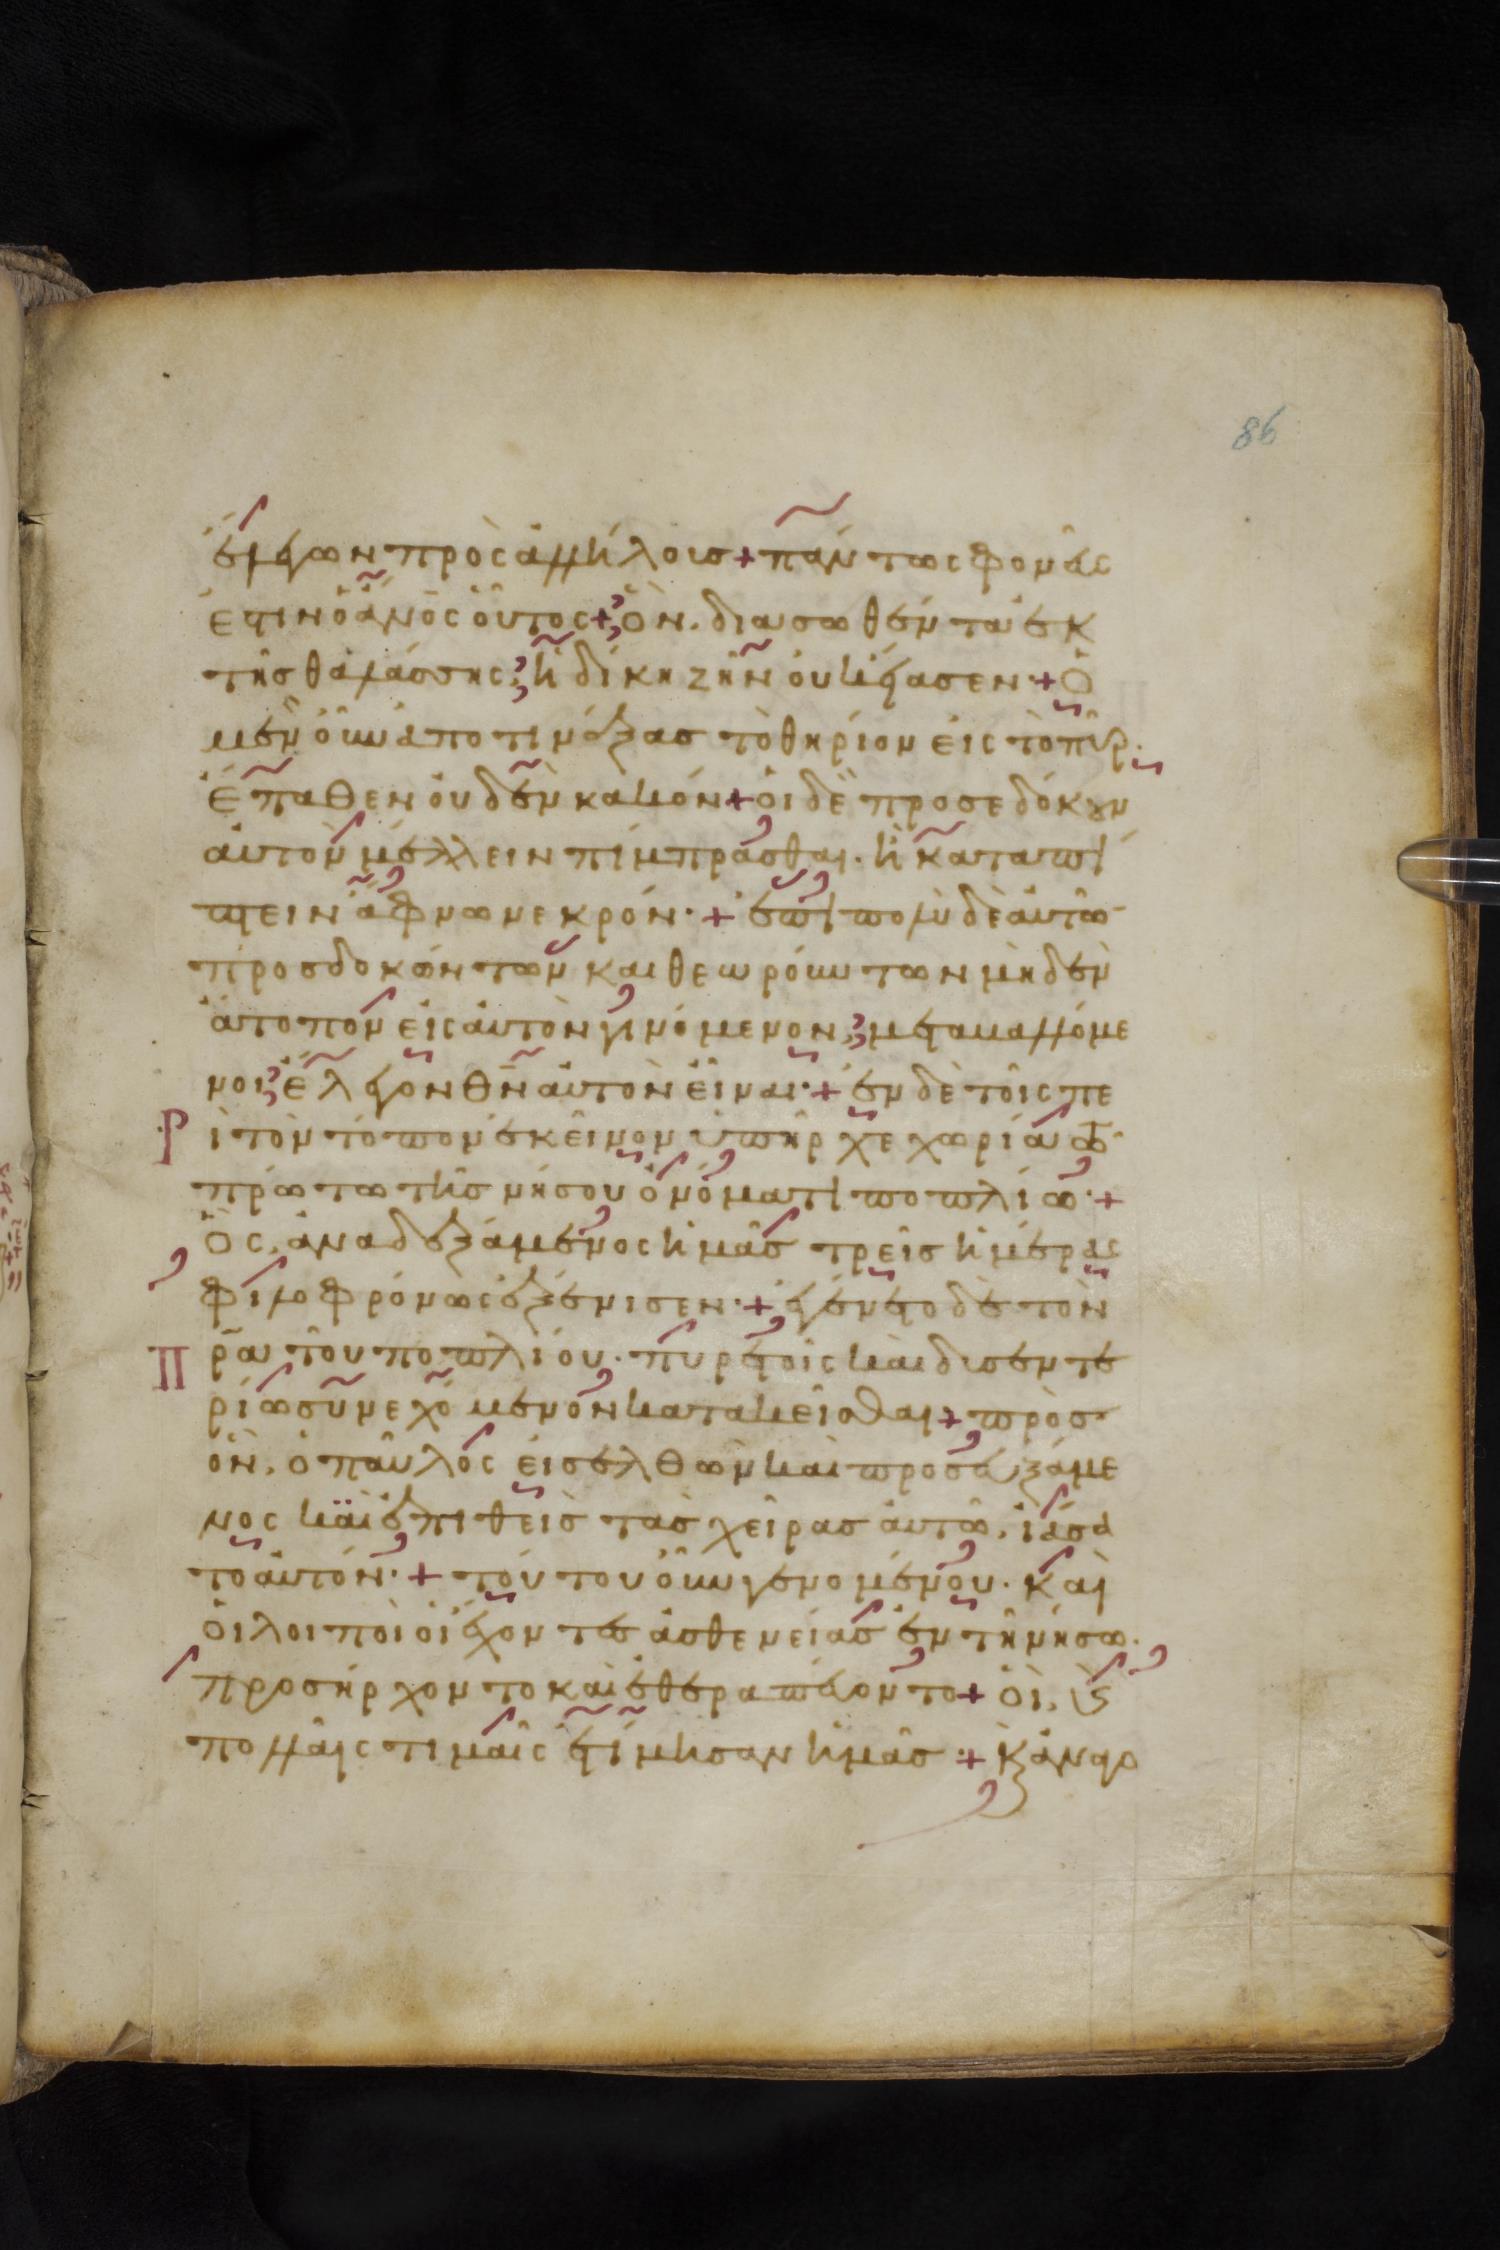 86
ἔλεγον πρὸς ἀλλήλους + πάντως φονεύς
ἐστιν ὁ ἄνος οὗτος + ὃν. διασωθέντα ἐκ
τῆς θαλάσσης, ἡ δίκη ζῆν οὐκ εἴασεν + Ὁ
μὲν οὖν ἀποτινάξας τὸ θηρίον εἰς τὸ πῦρ.
ἔπαθεν οὐδὲν κακόν + οἱ δὲ προσεδόκουν
αὐτὸν μέλλειν πίμπρασθαι. ἢ καταπί
πτειν ἄφνω νεκρόν + ἐπὶ πολὺ δὲ αὐτῶ
προσδοκώντων και θεωρούντων μηδὲν
ἄτοπον εἰς αὐτὸν γινόμενον, μεταβαλλόμε
νοι, ἔλεγον θν αὐτὸν εἶναι + ἐν δὲ τοῖς πε
Ρ ὶ τὸν τόπον ἐκεῖνον ὑπῆρχε χωρία τῶ
πρώτω τῆς νήσου ὀνόματι ποπλίω +
Ὃς, ἀναδεξάμενος ἡμᾶς τρεῖς ἡμέρας
φιλοφρόνως ἐξένισεν + ἐγένετο δὲ τὸν
Π ρα τοῦ ποπλίου. πυρετοῖς καὶ δυσεντε
ρία συνεχόμενον κατακεῖσθαι + πρὸς
ὃν, ὁ παῦλος εἰσελθὼν καὶ προσευξάμε
νος καὶ ἐπιθεὶς τὰς χεῖρας αὐτῶ, ἰάσα
το αὐτόν + τούτου οὖν γενομένου. καὶ
οἱ λοιποὶ οἱ ἔχοντες ἀσθενείας ἐν τῆ νήσω.
προσήρχοντο καὶ ἐθεραπεύοντο + οἳ, ϗ
πολλαῖς τιμαῖς ἐτίμησαν ἡμᾶς + ϗ ἀναγο